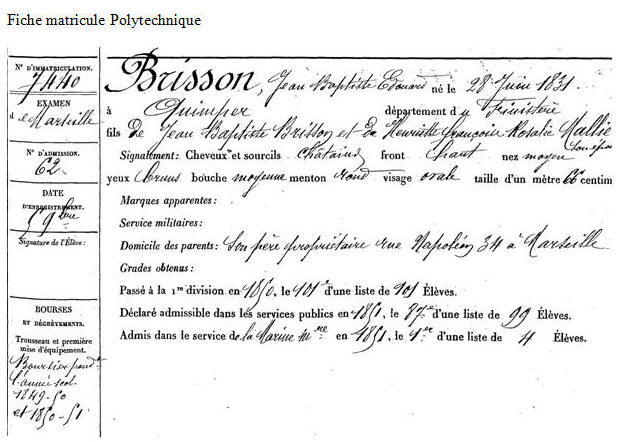 Fiche matricule Polytechnique
N° D'IMMATRICULATION.
7440
EXAMEN
de Marseille
N° D'ADMISSION.
62
DATE
D'ENREGISTREMENT.
9bre
Signature de l'Élève:
BOURSES
ET DÉGRÈVEMENTS.
Trousseau et première
mise d'équipement.
Boursier pendt
l'année scol.
1849-50
et 1850-51
Brisson, Jean Baptiste Edouard né le 28 Juin 1831
à Quimper département du Finistère
fils De Jean Baptiste Brisson et De Henriette françoise Rosalie Mallié
son épse
Signalement: Cheveux et sourcils Chatains front haut nez moyen
yeux bruns bouche moyenne menton rond visage ovale taille d'un mètre 66 centim
Marques apparentes:
Service militaires:
Domicile des parents: Son père propriétaire rue Napoléon 34 à Marseille
Grades obtenus:
Passé à la 1re division en 1850, le 101e d'une liste de 101 Élèves.
Déclaré admissible dans les services publics en 1851, le 87e d'une liste de 99 Élèves.
Admis dans le service de la Marine en 1851, le d'une liste de 4 Élèves.